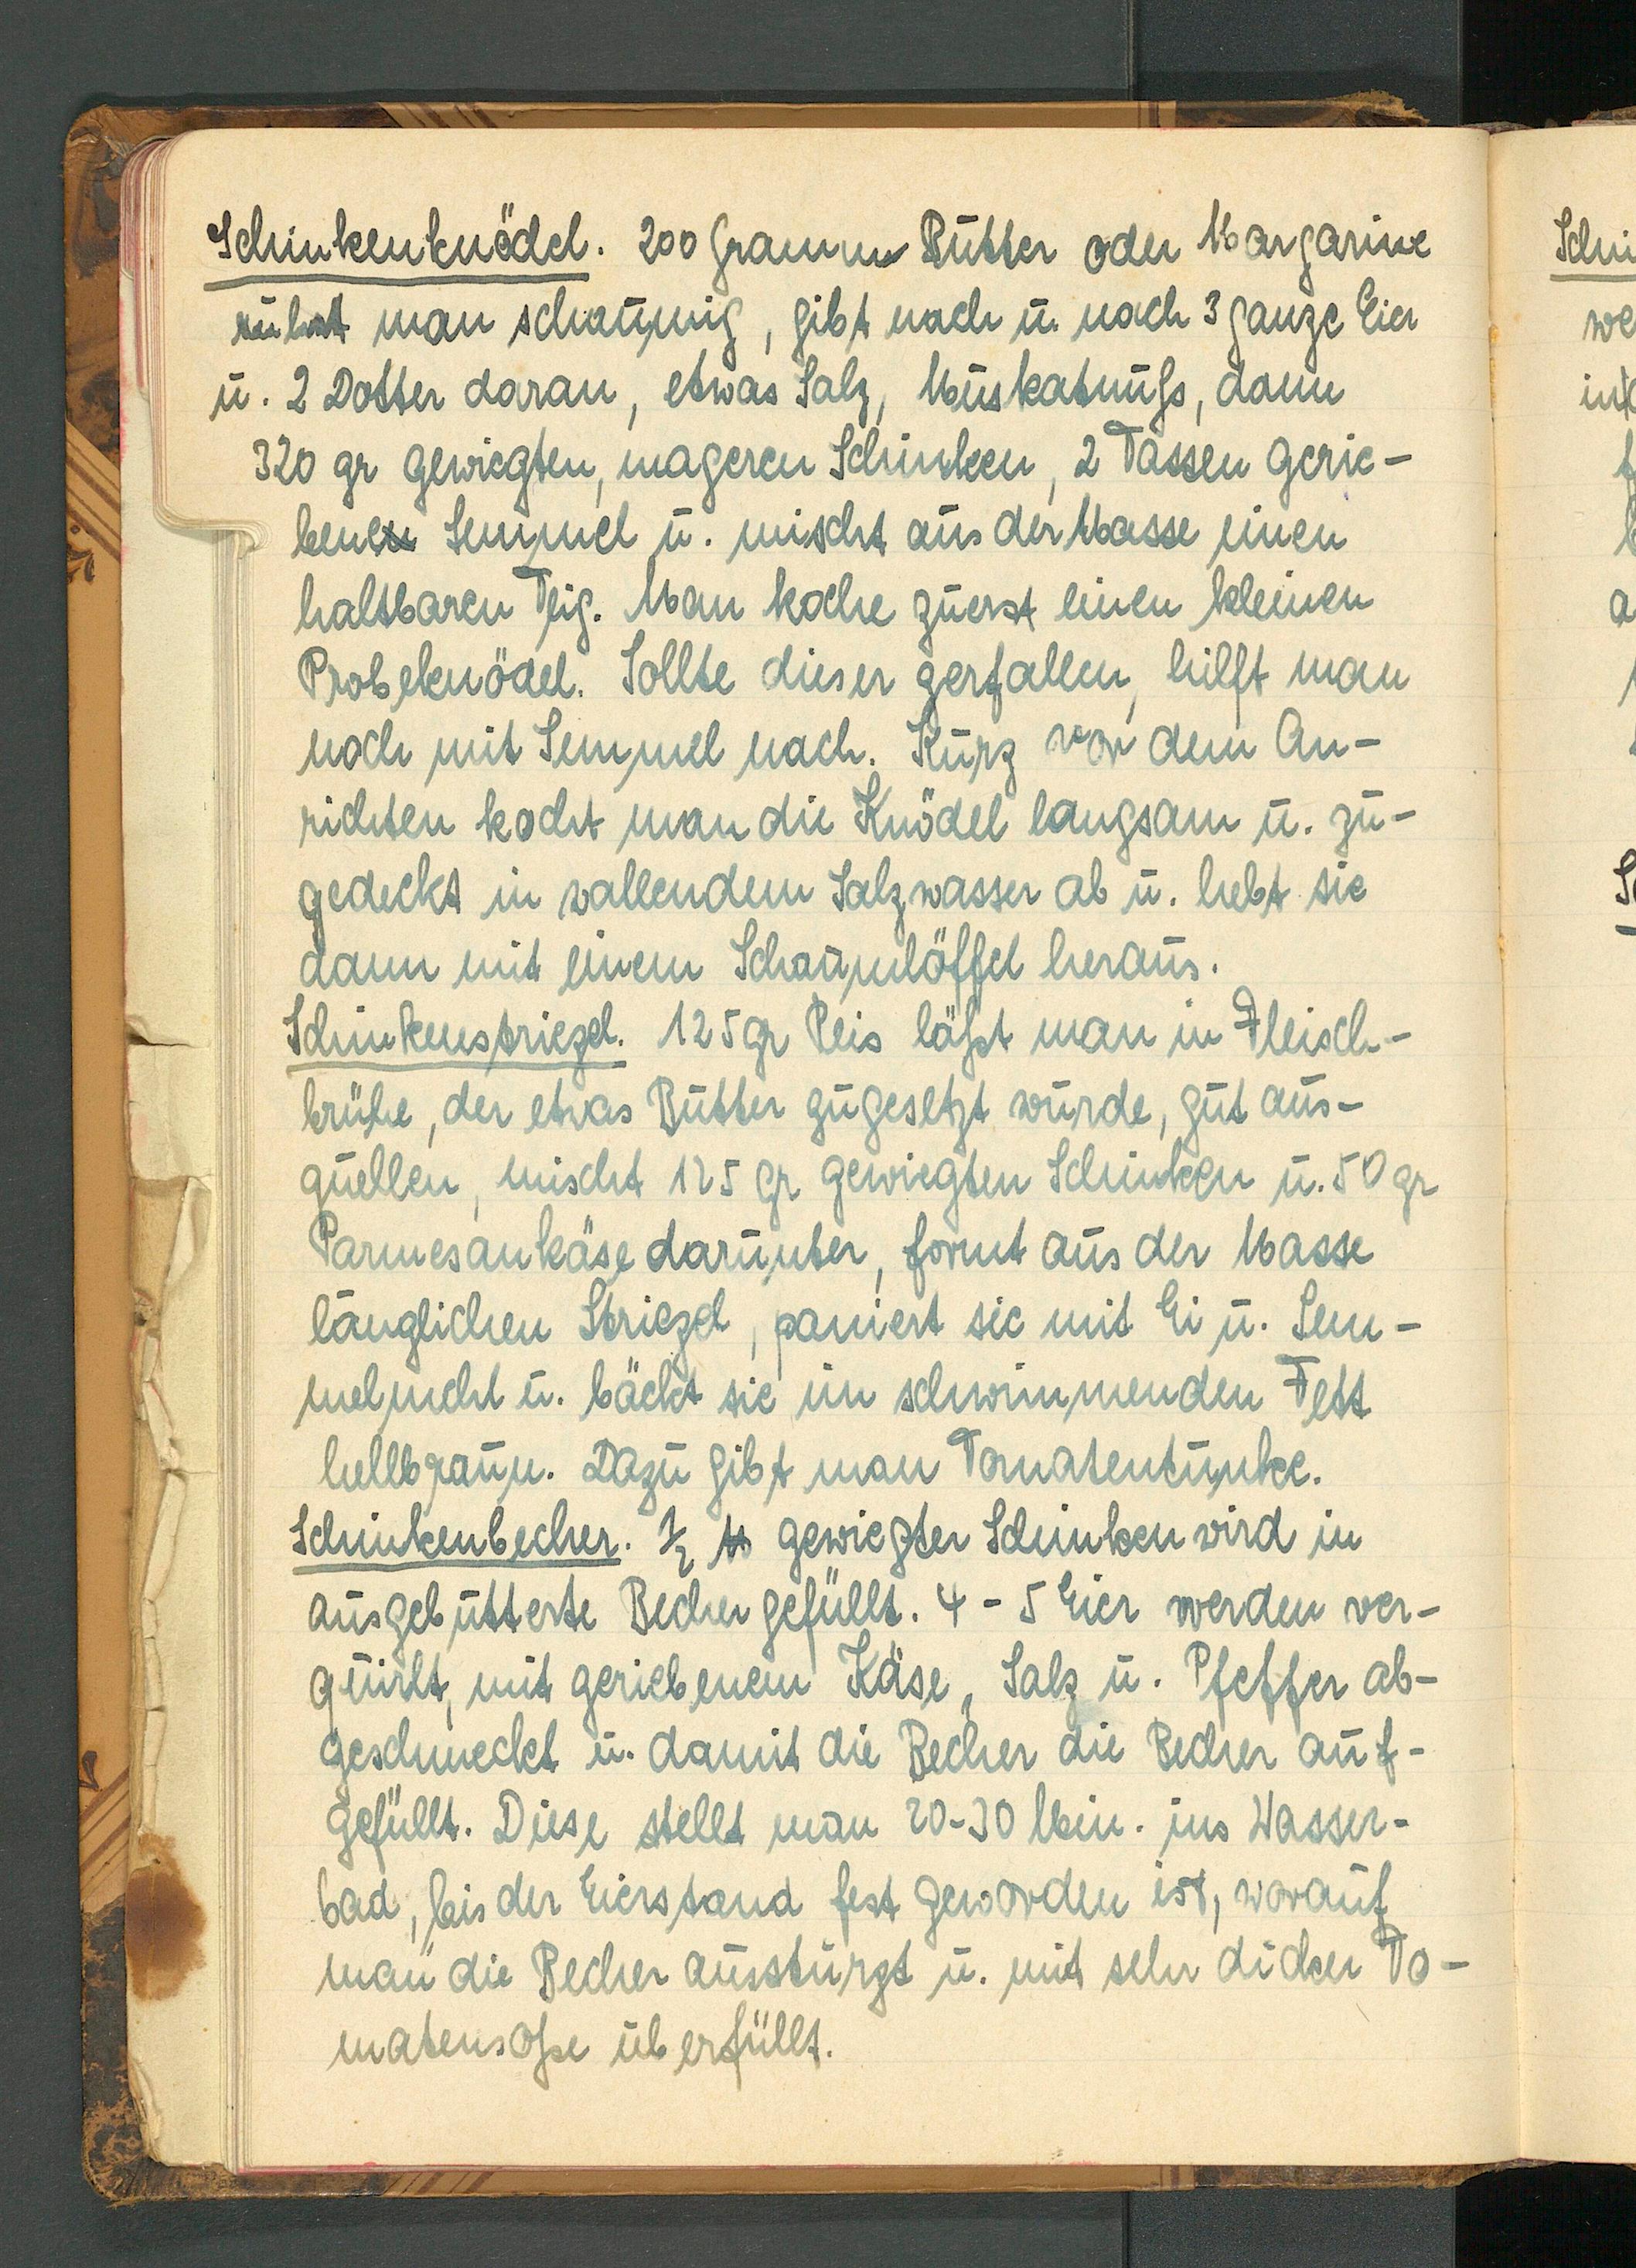 Schinkenknödel. 200 Gramm Butter oder Margarine
rührt man schaumig, gibt nach u. nach 3 ganze Eier
u. 2 Dotter daran, etwas Salz, Muskatnuß, dann
320 gr gewiegten, mageren Schinken, 2 Tassen gerie-
bene Semmel u. mischt aus der Masse einen
haltbaren Teig. Man koche zuerst einen kleinen
Probeknödel. Sollte dieser zerfallen, hilft man
noch mit Semmel nach. Kurz vor dem An-
richten kocht man die Knödel langsam u. zu-
gedeckt in wallendem Salzwasser ab u. hebt sie
dann mit einem Schaumlöffel heraus.
Schinkenstriezel. 125 gr Reis läßt man in Fleisch-
brühe, der etwas Butter zugesetzt wurde, gut aus-
quellen, mischt 125 gr gewiegten Schinken u. 50 gr
Parmesankäse darunter, formt aus der Masse
länglichen Striezel, paniert sie mit Ei u. Sem-
melmehl u. bäckt sie im schwimmenden Fett
hellbraun. Dazu gibt man Tomatentunke.
Schinkenbecher. 1/2 ℔ gewiegter Schinken wird in
ausgebutterte Becher gefüllt. 4 - 5 Eier werden ver-
quirlt, mit geriebenem Käse, Salz u. Pfeffer ab-
geschmeckt u. damit die Becher die Becher auf-
gefüllt. Diese stellt man 20-30 Min. ins Wasser-
bad, bis der Eierstand fest geworden ist, worauf
man die Becher ausstürzt u. mit sehr dicker To-
matensoße überfüllt.
Schin
we